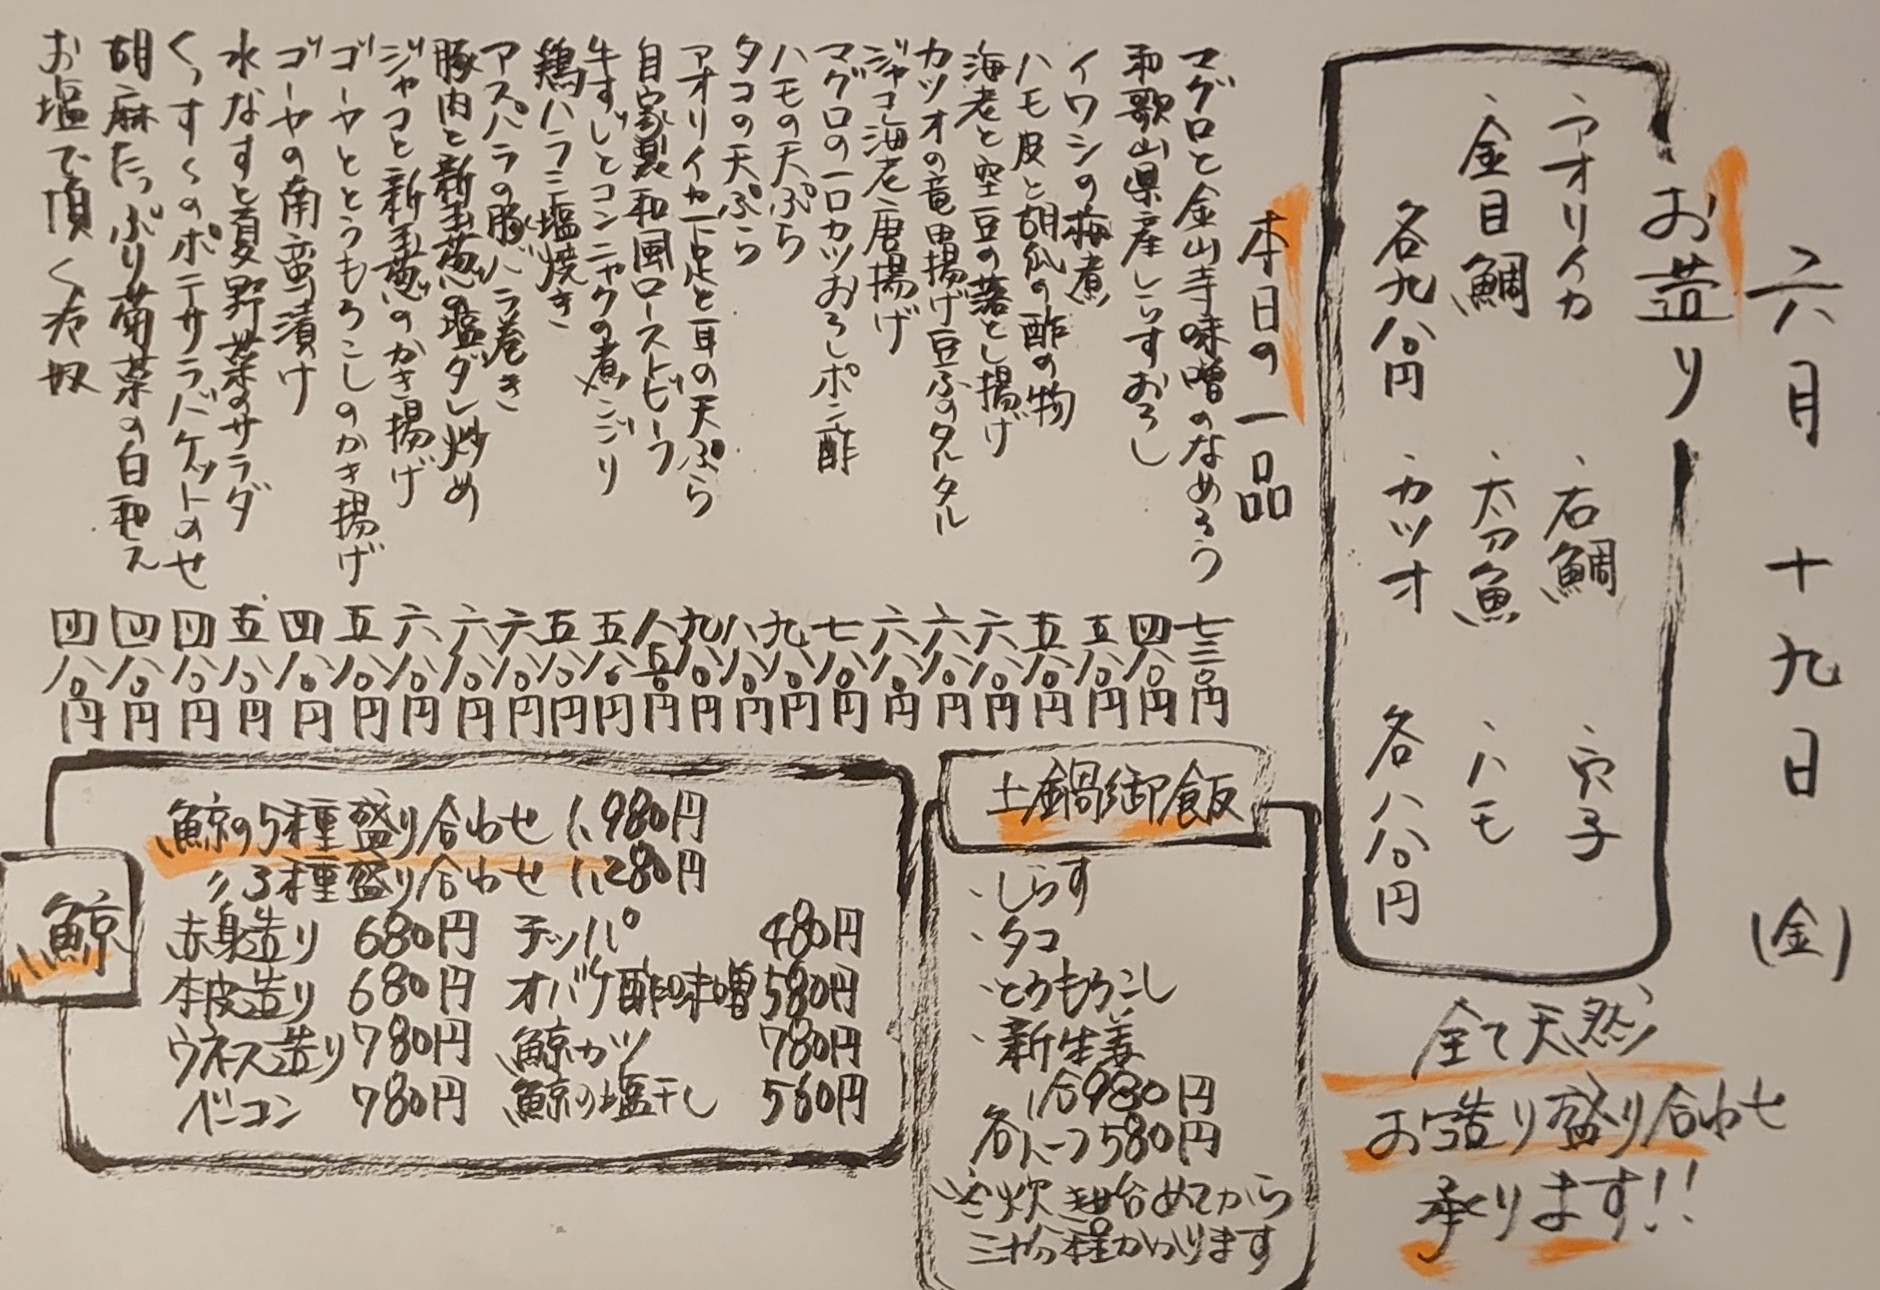 六月十九日(金)
お造り
・アオリイカ ・石鯛 ・穴子
・金目鯛 ・太刀魚 ・ハモ
各九八〇円 ・カツオ 各八八〇円
全て天然
お造り盛り合わせ
承ります!!
本日の一品
マグロと金山寺味噌のなめろう 七三〇円
和歌山県産しらすおろし 四八〇円
イワシの梅煮 五八〇円
ハモ皮と胡瓜の酢の物 五八〇円
海老と空豆の落とし揚げ 六八〇円
カツオの竜田揚げ豆ふのタルタル 六八〇円
ジャコ海老唐揚げ 六八〇円
マグロの一口カツおろしポン酢 七八〇円
ハモの天ぷら 九八〇円
タコの天ぷら 八八〇円
アオリイカ下足と耳の天ぷら 九八〇円
自家製和風ローストビーフ 八五〇円
牛すじとコンニャクの煮こごり 五八〇円
鶏ハラミ塩焼き 五八〇円
アスパラの豚バラ巻き 六八〇円
豚肉と新玉葱の塩ダレ炒め 六八〇円
ジャコと新玉葱のかき揚げ 六八〇円
ゴーヤととうもろこしのかき揚げ 五八〇円
ゴーヤの南蛮漬け 四八〇円
水なすと夏野菜のサラダ 五八〇円
くんすくのポテサラバケットのせ 四八〇円
胡麻たっぷり菊菜の白和え 四八〇円
お塩で頂く冷奴 四八〇円
土鍋御飯
・しらす
・タコ
・とうもろこし
・新生姜
一合980円
各ハーフ580円
※炊き始めてから
三十分程かかります
鯨
鯨の5種盛り合わせ 1,980円
〃3種盛り合わせ 1,280円
赤身造り 680円 テッパ 480円
本皮造り 680円 オバケ酢味噌 580円
ウネス造り 780円 鯨カツ 780円
ベーコン 780円 鯨の塩干し 560円